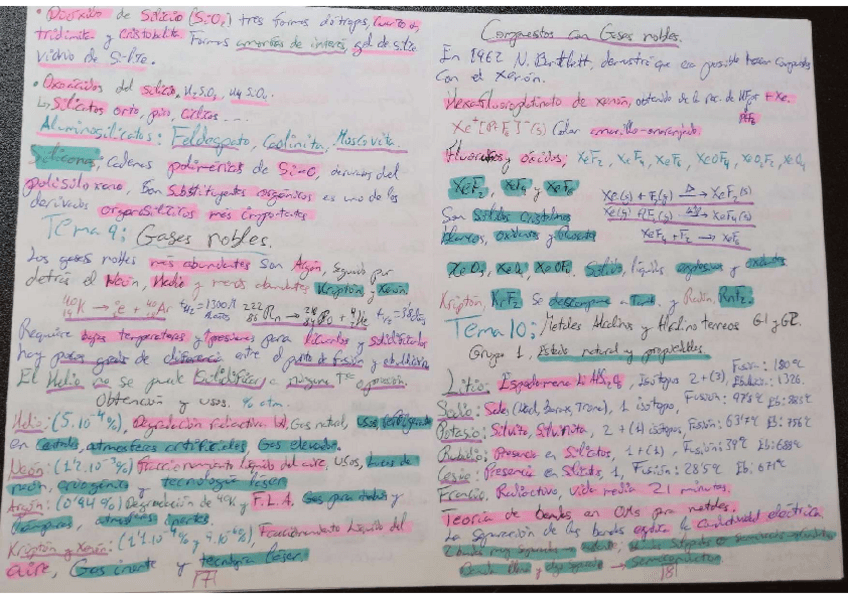 • Dióxido de Silicio (SiO2) tres formas alótropas, cuarzo,
tridimita y cristobalita Formas amorfas de interés, gel de sílice
vidrio de sílice.
• Oxoácidos del silicio, H2SiO3, H4SiO4
Los Silicatos orto, piro, cíclicos ...
Aluminosilicatos: Feldespato, Caolinita, Moscovita.
Siliconas: cadenas poliméricas de Si-O, derivados del
polisiloxano, Son Substituyentes orgánicos es uno de los
derivados organosilícicos más importantes
Tema 9: Gases nobles.
Los gases nobles más abundantes son Argón, seguido por
detrás el Neón, Helio y menos abundantes Kriptón y Xenón
40 19 K → e + 40 Ar t1/2 = 1300 M años 222 86 Rn → 218 84 Po + 4 2 He t1/2 = 3'8 días
Requiere bajas temperaturas y presiones para licuarlos y solidificarlos
hay pocos grados de diferencia entre el punto de fusión y ebullición
El Helio no se puede solidificar a ninguna Tª o presión.
Obtención y usos. % atm.
Helio: (5.10^-4%), Degradación radiactiva U, Gas natural, usos refrigerante
en estado, atmosferas artificiales Gas elevador.
Neón: (1'2.10^-3%) Fraccionamiento líquido del aire, usos, luces de
neón, criogénico y tecnología láser
Argón: (0'94%) Degradación de 40K y F.L.A. Gas para tubos y
lámparas, atmósferas inertes.
Kriptón y Xenón: (1'1.10^-4% y 9.10^-6%) Fraccionamiento líquido del
aire, Gas inerte y tecnología láser.
|7|
Compuestos con Gases nobles.
En 1962 N. Bartlett, demostró que era posible hacer compuestos
con el xenón.
Hexafluoroplatinato de xenón, obtenido de la rec. de + Xe.
PtF6
Xe+[PtF6]-(s) Color amarillo-anaranjado.
Fluoruros y óxidos, XeF2, XeF4, XeF6, XeOF4, XeO2F2, XeO4
XeF2, XeF4 y XeF6 Xe(g) + F2(g) → XeF2(s)
Son Sólidos cristalinos Xe(g) + 2F2(g) → XeF4(s)
blancos, oxidantes y XeF4 + F2 → XeF6
XeO3, XeO4, XeOF4 Sólido, líquidos explosivos y oxidantes
Kriptón, KrF2 Se descompone a Tamb. y Radón, RnF2.
Tema 10: Metales Alcalinos y Alcalino terreos G1 y G2.
Grupo 1, Estado natural y propiedades.
Litio: Espodumena LiAlSi2O6, Isótopos 2+(3), Fusión: 180ºC Ebullic: 1326.
Sodio: Sales (Halita, Borax, Trona), 1 isótopo, Fusión: 97'8ºC Eb: 883ºC
Potasio: Silvita, Silvinita, 2 + (1) isótopos, Fusión: 63'7ºC Eb: 756ºC
Rubidio: Presencia en Silicatos, 1+(1), Fusión: 39ºC Eb: 688ºC
Cesio: Presencia en Silicatos, 1, Fusión: 28'5ºC Eb: 671ºC
Francio, Radioactivo, vida media 21 minutos.
Teoría de bandas en OMs para metales.
La separación de las bandas explica la conductividad eléctrica.
2 bandas muy separadas → aislante;
Banda llena y algo separada → Semiconductor
|8|